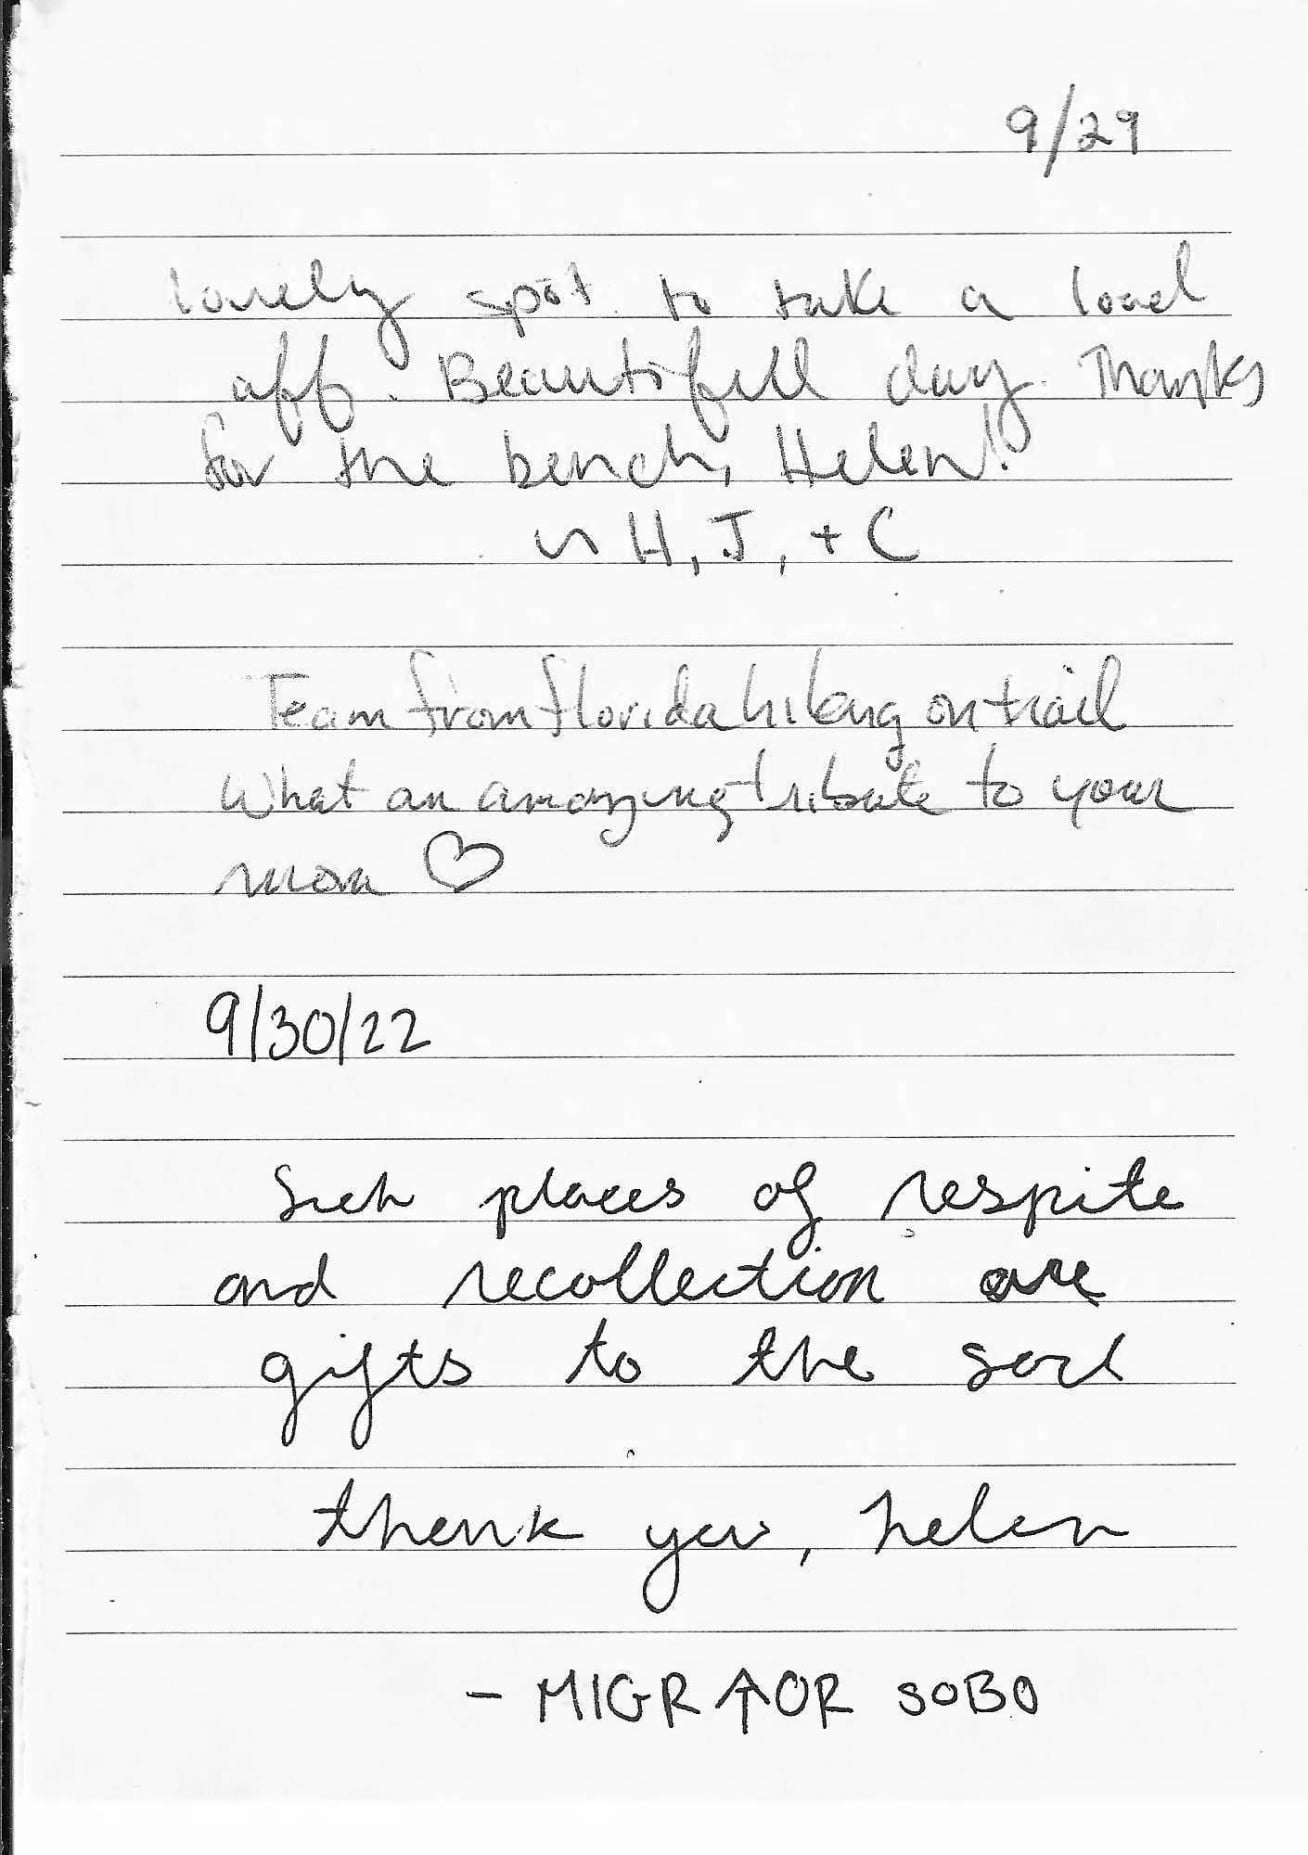 9/29
lovely spot to take a load
off. Beautifull day. Thanks
for the bench, Helen!
~ H, J, + C
Team from florida hiking on trail
What an amazing tribute to your
mom ♡
9/30/22
Such places of respite
and recollection are
gifts to the soul
thank you, helen
- MIGR↑OR SOBO